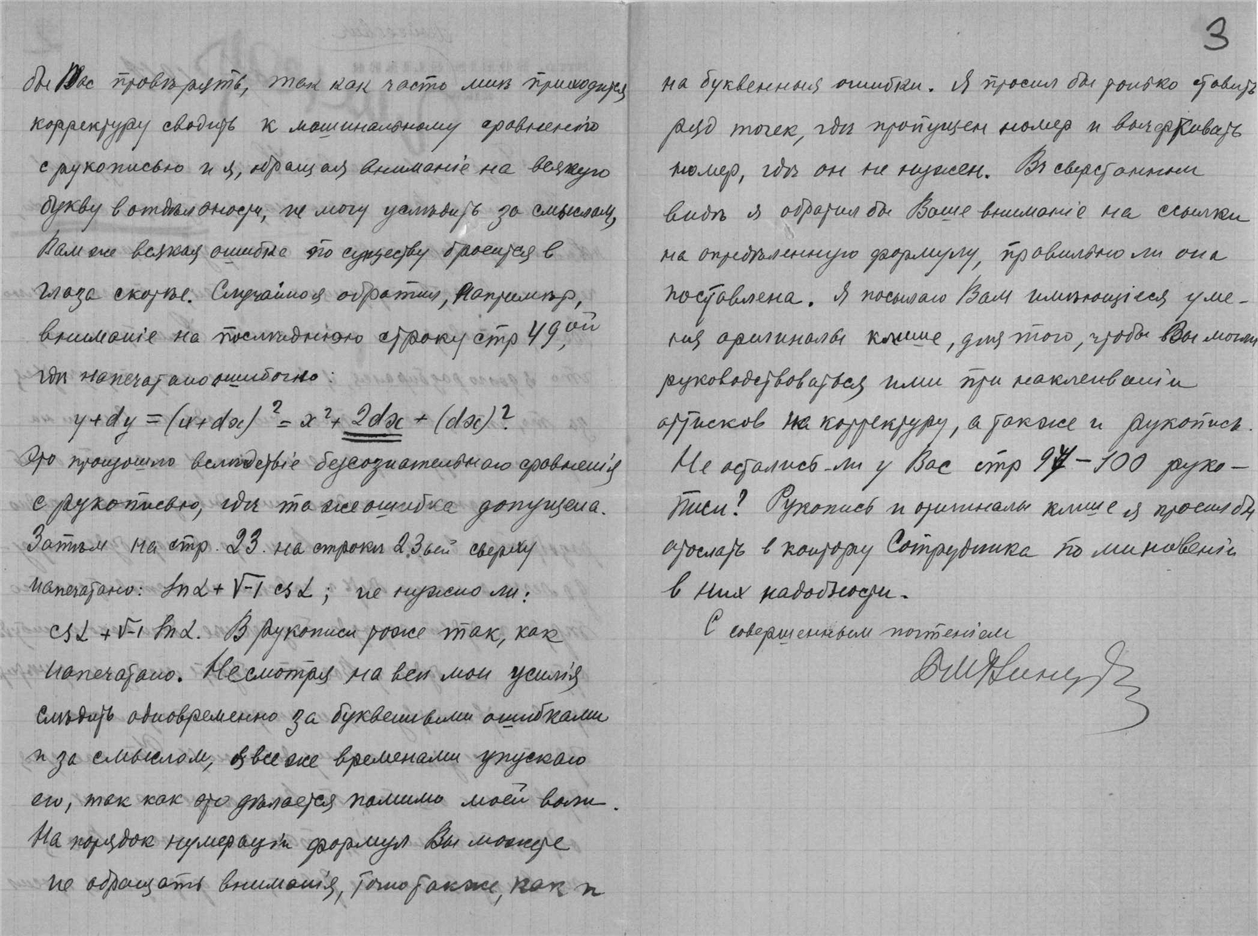 3
бы Вас провѣрять, так как часто мнѣ приходится
корректуру сводить к машинальному сравненію
с рукописью и я, обращая вниманіе на всякую
букву в отдѣльности, не могу услѣдить за смыслом,
Вам же всякая ошибка по существу бросится в
глаза скорѣе. Случайно я обратил, напримѣр,
вниманіе на послѣднюю строку стр 49,ой
гдѣ напечатано ошибочно:
y + dy = (x+dx)² = x² + 2dx + (dx)²
Это произошло вслѣдствіе безсознательнаго сравненія
с рукописью, гдѣ та же ошибка допущена.
Затѣм на стр. 23. на строкѣ 23ьей сверху
напечатано: sn α + √-1 cs α ; не нужно ли:
cs α + √-1 sn α. В рукописи тоже так, как
напечатано. Несмотря на всѣ мои усилія
слѣдить одновременно за буквенными ошибками
и за смыслом, я все же временами упускаю
его, так как это дѣлается помимо моей воли.
На порядок нумераціи формул Вы можете
не обращать вниманія, точно также, как и
на буквенныя ошибки. Я просил бы только ставить
ряд точек, гдѣ пропущен номер и вычеркивать
номер, гдѣ он не нужен. В сверстанном
видѣ я обратил бы Ваше вниманіе на ссылки
на опредѣленную формулу, правильно ли она
поставлена. Я посылаю Вам имѣющіеся у ме-
ня оригиналы клише, для того, чтобы Вы могли
руководствоваться ими при наклеиваніи
оттисков на корректуру, а также и рукопись.
Не остались-ли у Вас стр 97–100 руко-
писи? Рукопись и оригиналы клише я просил бы
отослать в контору Сотрудника по минованіи
в них надобности.
С совершенным почтеніем